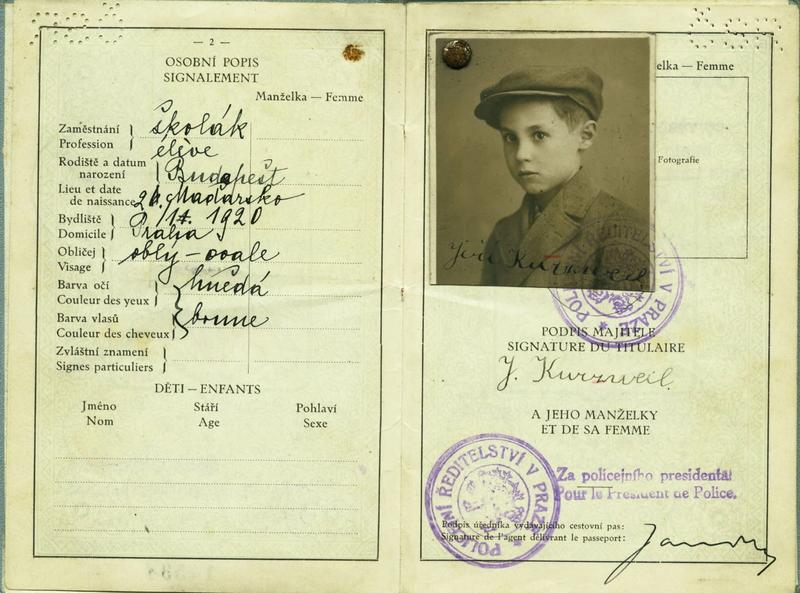 — 2 —
OSOBNÍ POPIS
SIGNALEMENT
Manželka — Femme
Zaměstnání
Profession
školák
élève
Rodiště a datum
narození
Budapešt
Lieu et date
de naissance
Maďarsko
1920
Bydliště
Domicile
Praha
Obličej
Visage
oblý – ovale
Barva očí
Couleur des yeux
hnědá
Barva vlasů
Couleur des cheveux
brune
Zvláštní znamení
Signes particuliers
DĚTI — ENFANTS
Jméno Stáří Pohlaví
Nom Age Sexe
elka — Femme
Fotografie
Jiří Kurzweil
POLICEJNÍ ŘEDITELSTVÍ V PRAZE
PODPIS MAJITELE
SIGNATURE DU TITULAIRE
J. Kurzweil
A JEHO MANŽELKY
ET DE SA FEMME
POLICEJNÍ ŘEDITELSTVÍ V PRAZE
Za policejního presidenta:
Pour le President de Police.
Podpis úředníka vydávajícího cestovní pas:
Signature de l'agent délivrant le passeport: